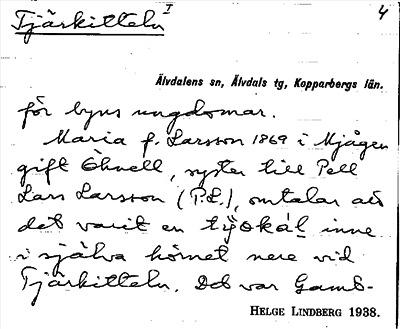 Tjärkitteln I 4
Älvdalens sn, Älvdals tg, Kopparbergs län.
för byns ungdomar.
Maria f. Larsson 1869 i Mjågen
gift Ehnell, syster till Pell
Lars Larsson (P.L.), omtalar att
det varit en inne
i själva hörnet nere vid
Tjärkitteln. Det var Gamb-
HELGE LINDBERG 1938.